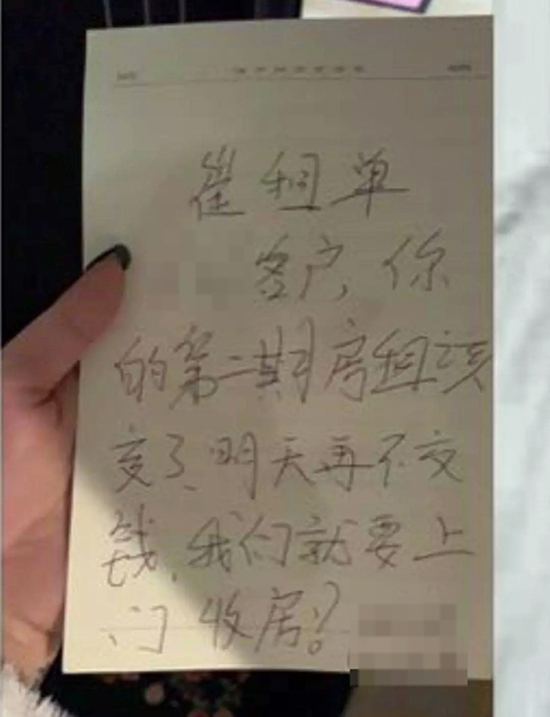 崔租单
客户,你
的第二期房租该
交了、明天再不交
钱,我们就要上
门收居?